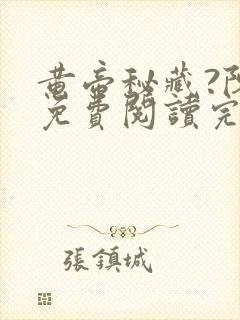 黄帝秘藏?阴
免費閱讀完
張鎮城